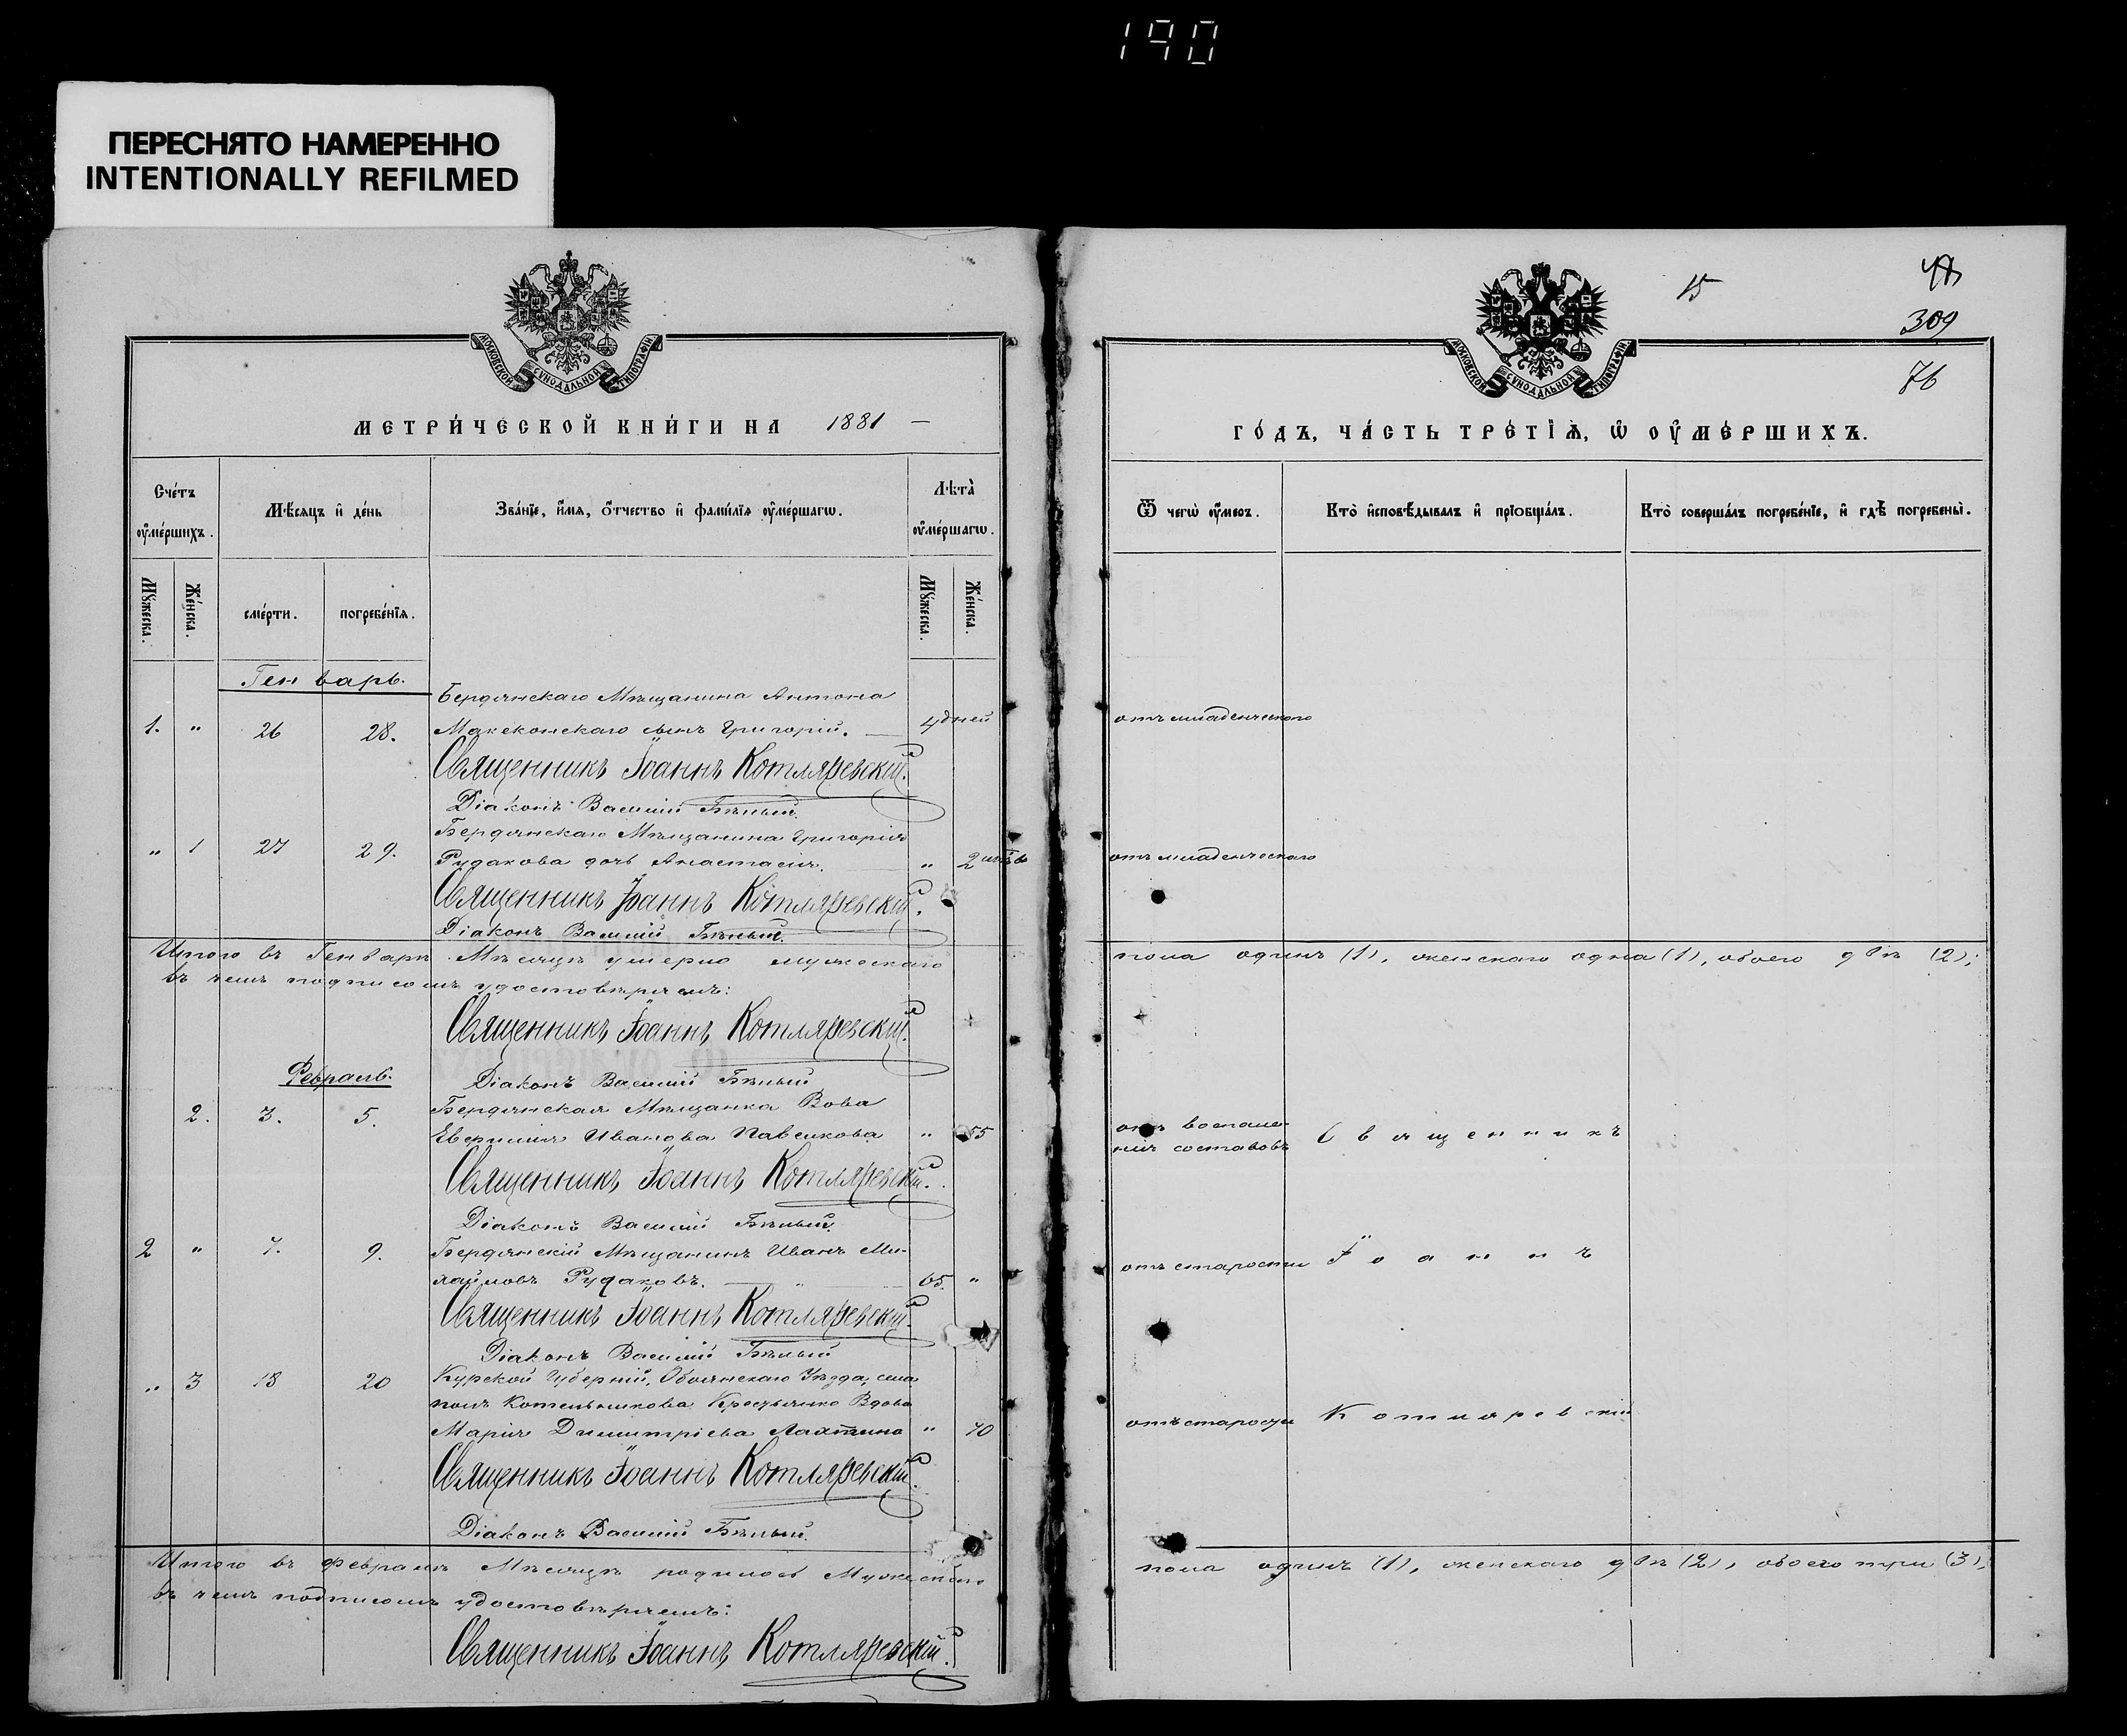 190
ПЕРЕСНЯТО НАМЕРЕННО
INTENTIONALLY REFILMED
МОСКОВСКОЙ СѴНОДАЛЬНОЙ ТИПОГРАФІИ
МЕТРИ́ЧЕСКОЙ КНИ́ГИ НА 1881 —
Сче́тъ ᲂу҆ме́ршихъ.
Мѣ́сяцъ и҆ де́нь
Зва́нїе, и҆́мя, ѻ҆́тчество и҆ фами́лїя ᲂу҆ме́ршагѡ.
Лѣта̀ ᲂу҆ме́ршагѡ.
Мꙋ́жеска.
Же́нска.
сме́рти.
погребе́нїя.
Мꙋ́жеска.
Же́нска.
Генварь.
Бердянскаго Мѣщанина Антона
1. " 26 28. Макеконскаго сынъ Григорій. — 4 дней
Священникъ Іоаннъ Котляревскій.
Діаконъ Василій Бѣлый.
Бердянскаго Мѣщанина Григорія
" 1 27 29. Рудакова дочь Анастасія. " 2
Священникъ Іоаннъ Котляревскій.
Діаконъ Василій Бѣлый.
Итого въ Генварѣ Мѣсяцѣ умерло мужескаго
въ чемъ подписомъ удостовѣряемъ:
Священникъ Іоаннъ Котляревскій.
Февраль.
Діаконъ Василій Бѣлый
Бердянская Мѣщанка Вова
2. 3. 5. Иванова Павелкова " 55
Священникъ Іоаннъ Котляревскій.
Діаконъ Василій Бѣлый.
2 " 7. 9. Бердянскій Мѣщанинъ Иванъ Ми-
хайловъ Рудаковъ. — " — 65. "
Священникъ Іоаннъ Котляревскій.
Діаконъ Василій Бѣлый
" 3 18 20 Курской Губерніи, Обоянскаго Уѣзда, села
Котельникова Крестьянка Вдова
Марія Димитріева Лахтина " 70
Священникъ Іоаннъ Котляревскій.
Діаконъ Василій Бѣлый.
Итого въ Февралѣ Мѣсяцѣ родилось Мужескаго
въ чемъ подписомъ удостовѣряемъ:
Священникъ Іоаннъ Котляревскій.
МОСКОВСКОЙ СѴНОДАЛЬНОЙ ТИПОГРАФІИ
15
309
76
ГО́ДЪ, ЧА́СТЬ ТРЕ́ТІѦ, Ѡ҆ ОУ҆МЕ́РШИХЪ.
Ѿ чегѡ̀ ᲂу҆́меръ.
Кто̀ и҆сповѣ́дывалъ и҆ прїѻбща́лъ.
Кто̀ соверша́лъ погребе́нїе, и҆ гдѣ̀ погребены̀.
отъ младенческаго
отъ младенческаго
пола одинъ (1), женскаго одна (1), обоего двѣ (2);
отъ воспале-
нія составовъ Священникъ
отъ старости Іоаннъ
отъ старости Котляревскій
пола одинъ (1), женскаго двѣ (2), обоего три (3);